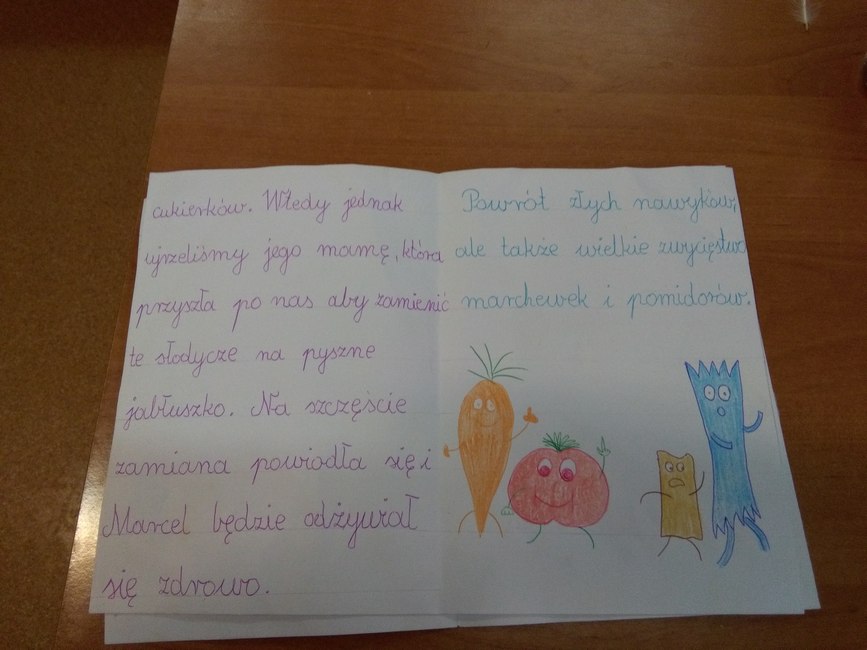 cukierków. Wtedy jednak
ujrzeliśmy jego mamę, która
przyszła po nas aby zamienić
te słodycze na pyszne
jabłuszko. Na szczęście
zamiana powiodła się i
Marcel będzie odżywiał
się zdrowo.
Powrót złych nawyków,
ale także wielkie zwycięstwo
marchewek i pomidorów.